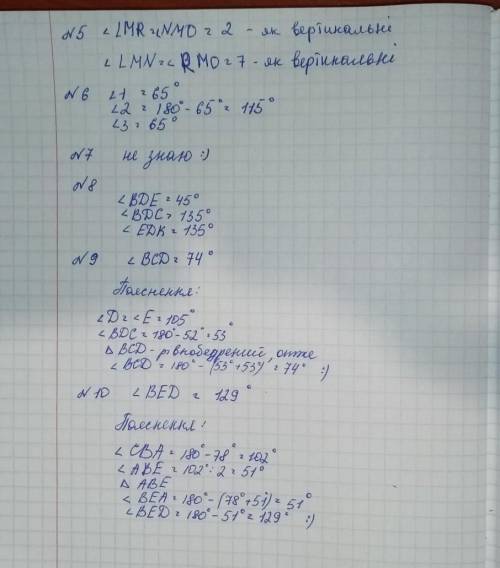 №5 ∠LMR=∠NMO = 2 - як вертикальні
∠LMN=∠RMO=7 - як вертикальні
№6 ∠1 = 65°
∠2 = 180° - 65° = 115°
∠3 = 65°
№7 не знаю :)
№8
∠BDE = 45°
∠BDC = 135°
∠EDK = 135°
№9 ∠BCD = 74°
Пояснення:
∠D = ∠E = 105°
∠BDC = 180° - 52° = 53°
△ BCD - рівнобедрений, отже
∠BCD = 180° - (53°+53°) = 74° :)
№10 ∠BED = 129°
Пояснення:
∠CBA = 180° - 78° = 102°
∠ABE = 102° : 2 = 51°
△ ABE
∠BEA = 180° - (78°+51°) = 51°
∠BED = 180° - 51° = 129° :)